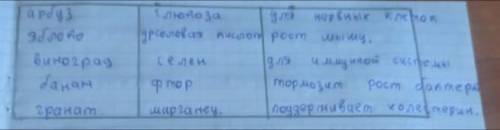 арбуз глюкоза для нервных клеток
яблоко урсоловая кислот рост мышц.
виноград селен для имунной системы
банан фтор тормозит рост бактери
гранат марганец. поддерживает холестерин.